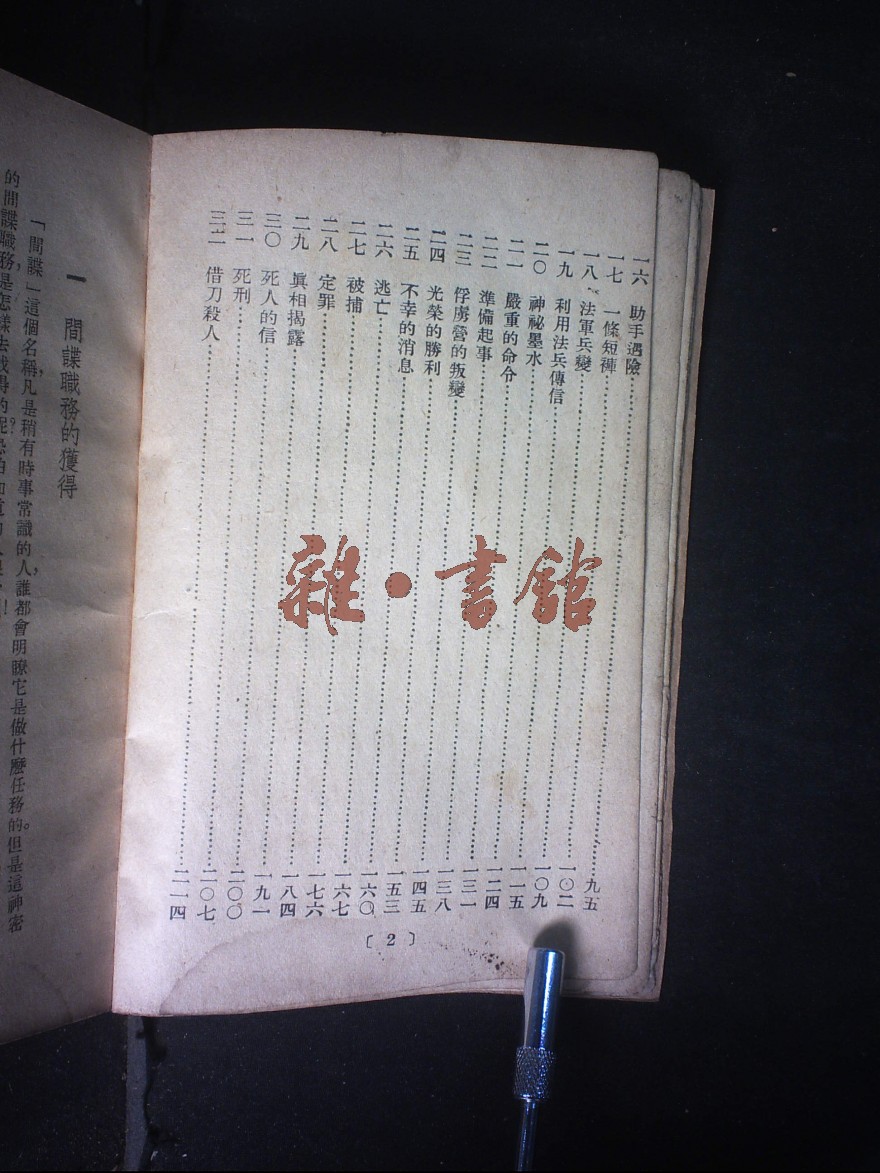 一六 助手遇險……九五
一七 一條短褲……一〇二
一八 法軍兵變……一〇九
一九 利用法兵傳信……一一五
二〇 神祕墨水……一二四
二一 嚴重的命令……一三一
二二 準備起事……一三八
二三 俘虜營的叛變……一四五
二四 光榮的勝利……一五三
二五 不幸的消息……一六〇
二六 逃亡……一六七
二七 被捕……一七六
二八 定罪……一八四
二九 眞相揭露……一九一
三〇 死人的信……二〇〇
三一 死刑……二〇七
三二 借刀殺人……二一四
〔2〕
雜·書館
一 間諜職務的獲得
「間諜」這個名稱，凡是稍有時事常識的人，誰都會明瞭它是做什麽任務的。但是這神密
的間諜職務，是怎樣去